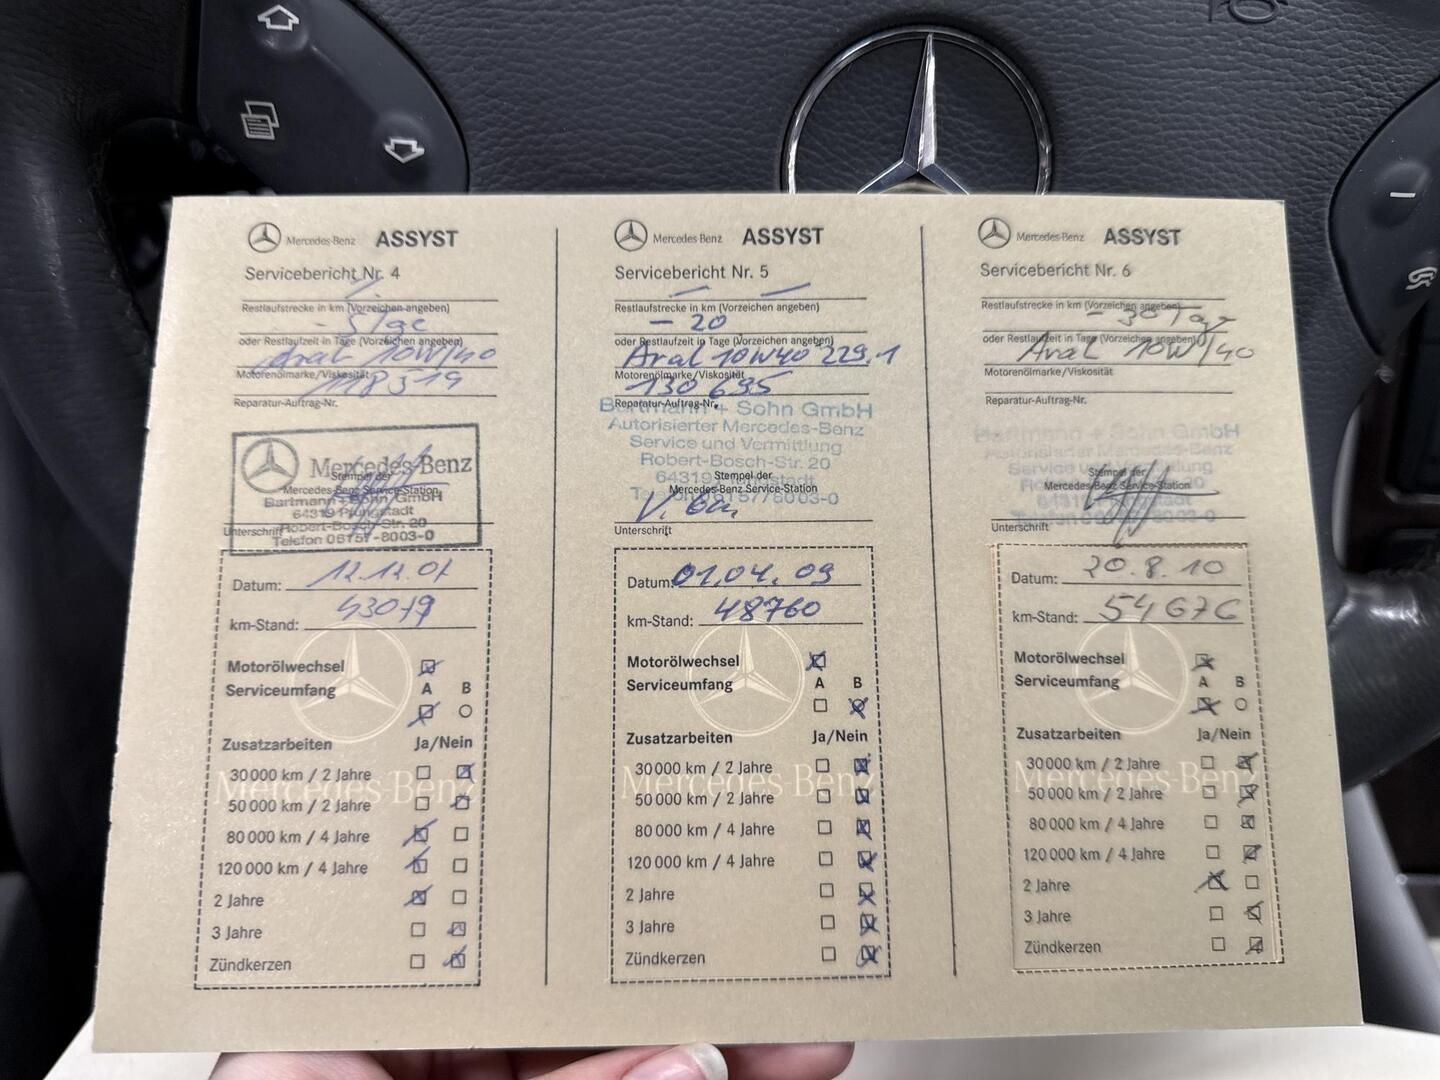 Mercedes-Benz ASSYST
Servicebericht Nr. 4
Restlaufstrecke in km (Vorzeichen angeben)
- 5 Tage
oder Restlaufzeit in Tage (Vorzeichen angeben)
Aral 10W/40
Motorenölmarke/Viskosität
118519
Reparatur-Auftrag-Nr.
Mercedes-Benz
Stempel der
Mercedes-Benz Service-Station
Bartmann + Sohn GmbH
64319 Pfungstadt
Robert-Bosch-Str. 20
Unterschrift
Telefon 06157-8003-0
Datum: 12.12.07
km-Stand: 43079
Motorölwechsel
Serviceumfang A B
Zusatzarbeiten Ja/Nein
30000 km / 2 Jahre
50000 km / 2 Jahre
80000 km / 4 Jahre
120000 km / 4 Jahre
2 Jahre
3 Jahre
Zündkerzen
Mercedes-Benz
Mercedes-Benz ASSYST
Servicebericht Nr. 5
Restlaufstrecke in km (Vorzeichen angeben)
- 20
oder Restlaufzeit in Tage (Vorzeichen angeben)
Aral 10W40 229.1
Motorenölmarke/Viskosität
130695
Reparatur-Auftrag-Nr.
Bartmann + Sohn GmbH
Autorisierter Mercedes-Benz
Service und Vermittlung
Robert-Bosch-Str. 20
64319 Pfungstadt
Stempel der
Mercedes-Benz Service-Station
Telefon 06157/8003-0
Unterschrift
Datum: 01.04.09
km-Stand: 48760
Motorölwechsel
Serviceumfang A B
Zusatzarbeiten Ja/Nein
30000 km / 2 Jahre
50000 km / 2 Jahre
80000 km / 4 Jahre
120000 km / 4 Jahre
2 Jahre
3 Jahre
Zündkerzen
Mercedes-Benz
Mercedes-Benz ASSYST
Servicebericht Nr. 6
Restlaufstrecke in km (Vorzeichen angeben)
- 30 Tage
oder Restlaufzeit in Tage (Vorzeichen angeben)
Aral 10W/40
Motorenölmarke/Viskosität
Reparatur-Auftrag-Nr.
Bartmann + Sohn GmbH
Autorisierter Mercedes-Benz
Service und Vermittlung
Stempel der
Mercedes-Benz Service-Station
64319 Pfungstadt
Telefon 06157/8003-0
Unterschrift
Datum: 20.8.10
km-Stand: 54676
Motorölwechsel
Serviceumfang A B
Zusatzarbeiten Ja/Nein
30000 km / 2 Jahre
50000 km / 2 Jahre
80000 km / 4 Jahre
120000 km / 4 Jahre
2 Jahre
3 Jahre
Zündkerzen
Mercedes-Benz